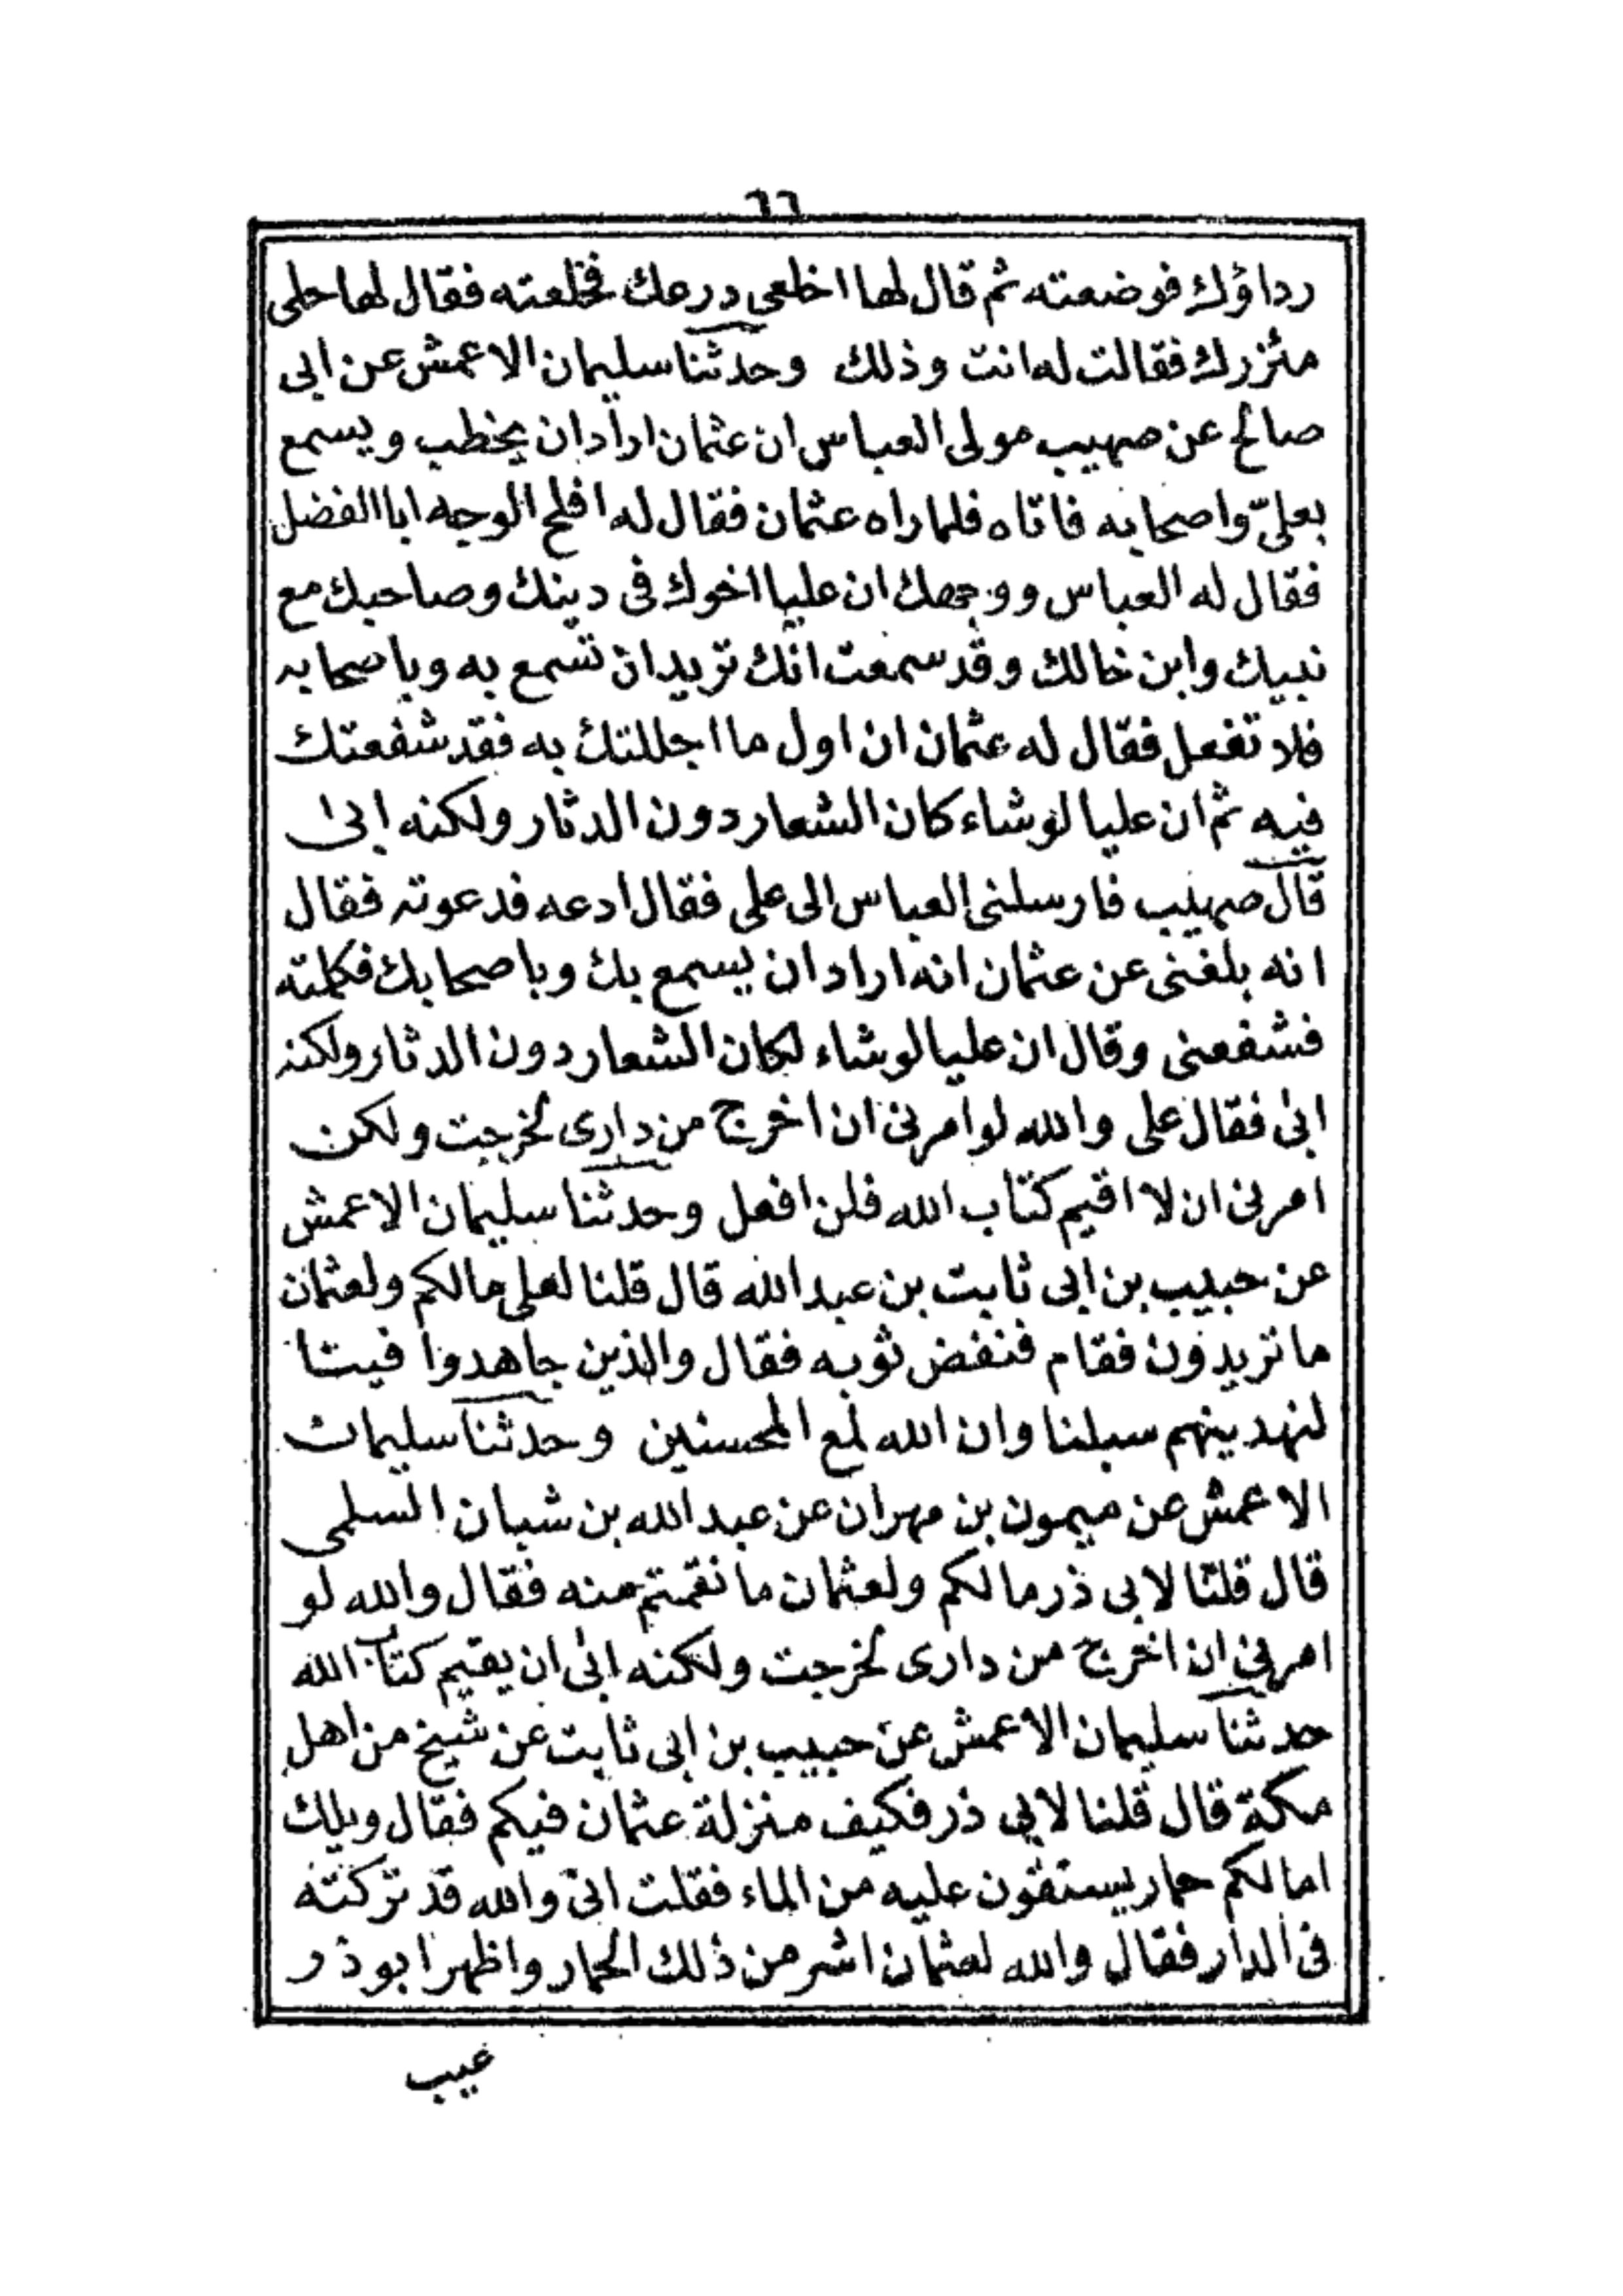 ٦٦
رداؤك فوضعته ثم قال لها اخلعى درعك فخلعته فقال لها حلى
مئزرك فقالت له انت وذلك وحدثنا سليمان الاعمش عن ابى
صالح عن صهيب مولى العباس ان عثمان اراد ان يخطب ويسمع
بعلىّ واصحابه فاتاه فلما راه عثمان فقال له افلح الوجه ابا الفضل
فقال له العباس ووجهك ان عليا اخوك فى دينك وصاحبك مع
نبيك وابن خالك وقد سمعت انك تريد ان تسمع به وباصحابه
فلا تفعل فقال له عثمان ان اول ما اجللتك به فقد شفعتك
فيه ثم ان عليا لو شاء كان الشعار دون الدثار ولكنه ابى
قال صهيب فارسلنى العباس الى على فقال ادعه فدعوته فقال
انه بلغنى عن عثمان انه اراد ان يسمع بك وباصحابك فكلمته
فشفعنى وقال ان عليا لو شاء لكان الشعار دون الدثار ولكنه
ابى فقال على والله لو امرنى ان اخرج من دارى لخرجت ولكن
امرنى ان لا اقيم كتاب الله فلن افعل وحدثنا سليمان الاعمش
عن حبيب بن ابى ثابت بن عبد الله قال قلنا لعلى مالكم ولعثمان
ما تريدون فقام فنفض ثوبه فقال والذين جاهدوا فينا
لنهدينهم سبلنا وان الله لمع المحسنين وحدثنا سليمان
الاعمش عن ميمون بن مهران عن عبد الله بن شبان السلمى
قال قلنا لابى ذر مالكم ولعثمان ما نقمتم منه فقال والله لو
امرنى ان اخرج من دارى لخرجت ولكنه ابى ان يقيم كتاب الله
حدثنا سليمان الاعمش عن حبيب بن ابى ثابت عن شيخ من اهل
مكة قال قلنا لابى ذر فكيف منزلة عثمان فيكم فقال ويلك
اما لكم حمار يستقون عليه من الماء فقلت انى والله قد تركته
فى الدار فقال والله لعثمان اشر من ذلك الحمار واظهر ابو ذر
عيب